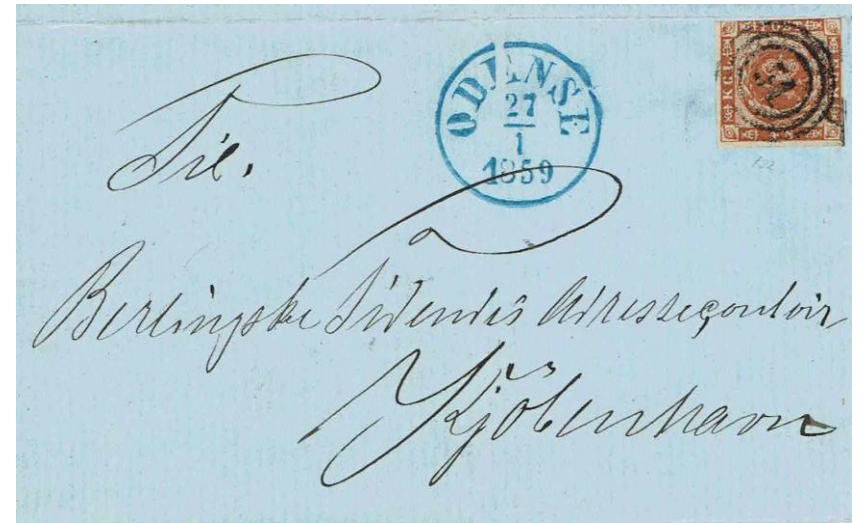 ODENSE
27
1
1859
KGL
Til.
Berlingske Tidendes Adresseçontoir
Kjöbenhavn